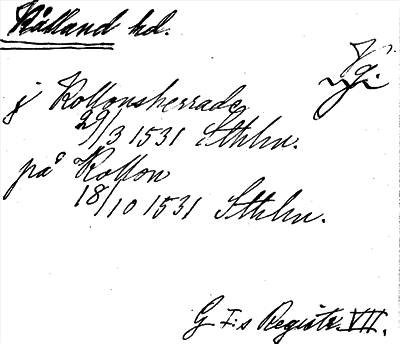 Kålland hd.
Vgi
j Kollonsherrade
29/3 1531 Sthlm.
på Kollon
18/10 1531 Sthlm.
G I:s Registr. VII.